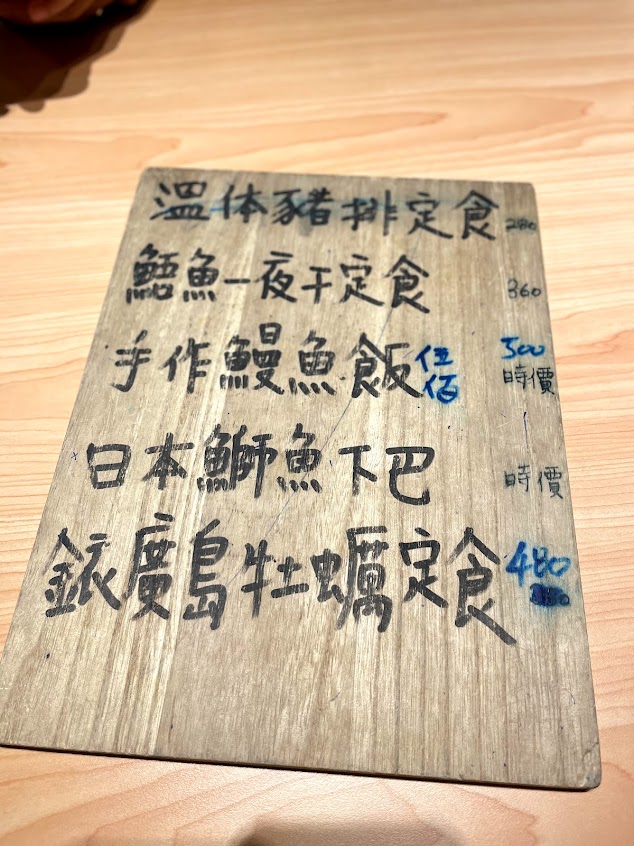 溫体豬排定食 280
魚一夜干定食 360
手作鰻魚飯 伍佰 500
時價
日本鰤魚下巴 時價
銥廣島牡蠣定食 480